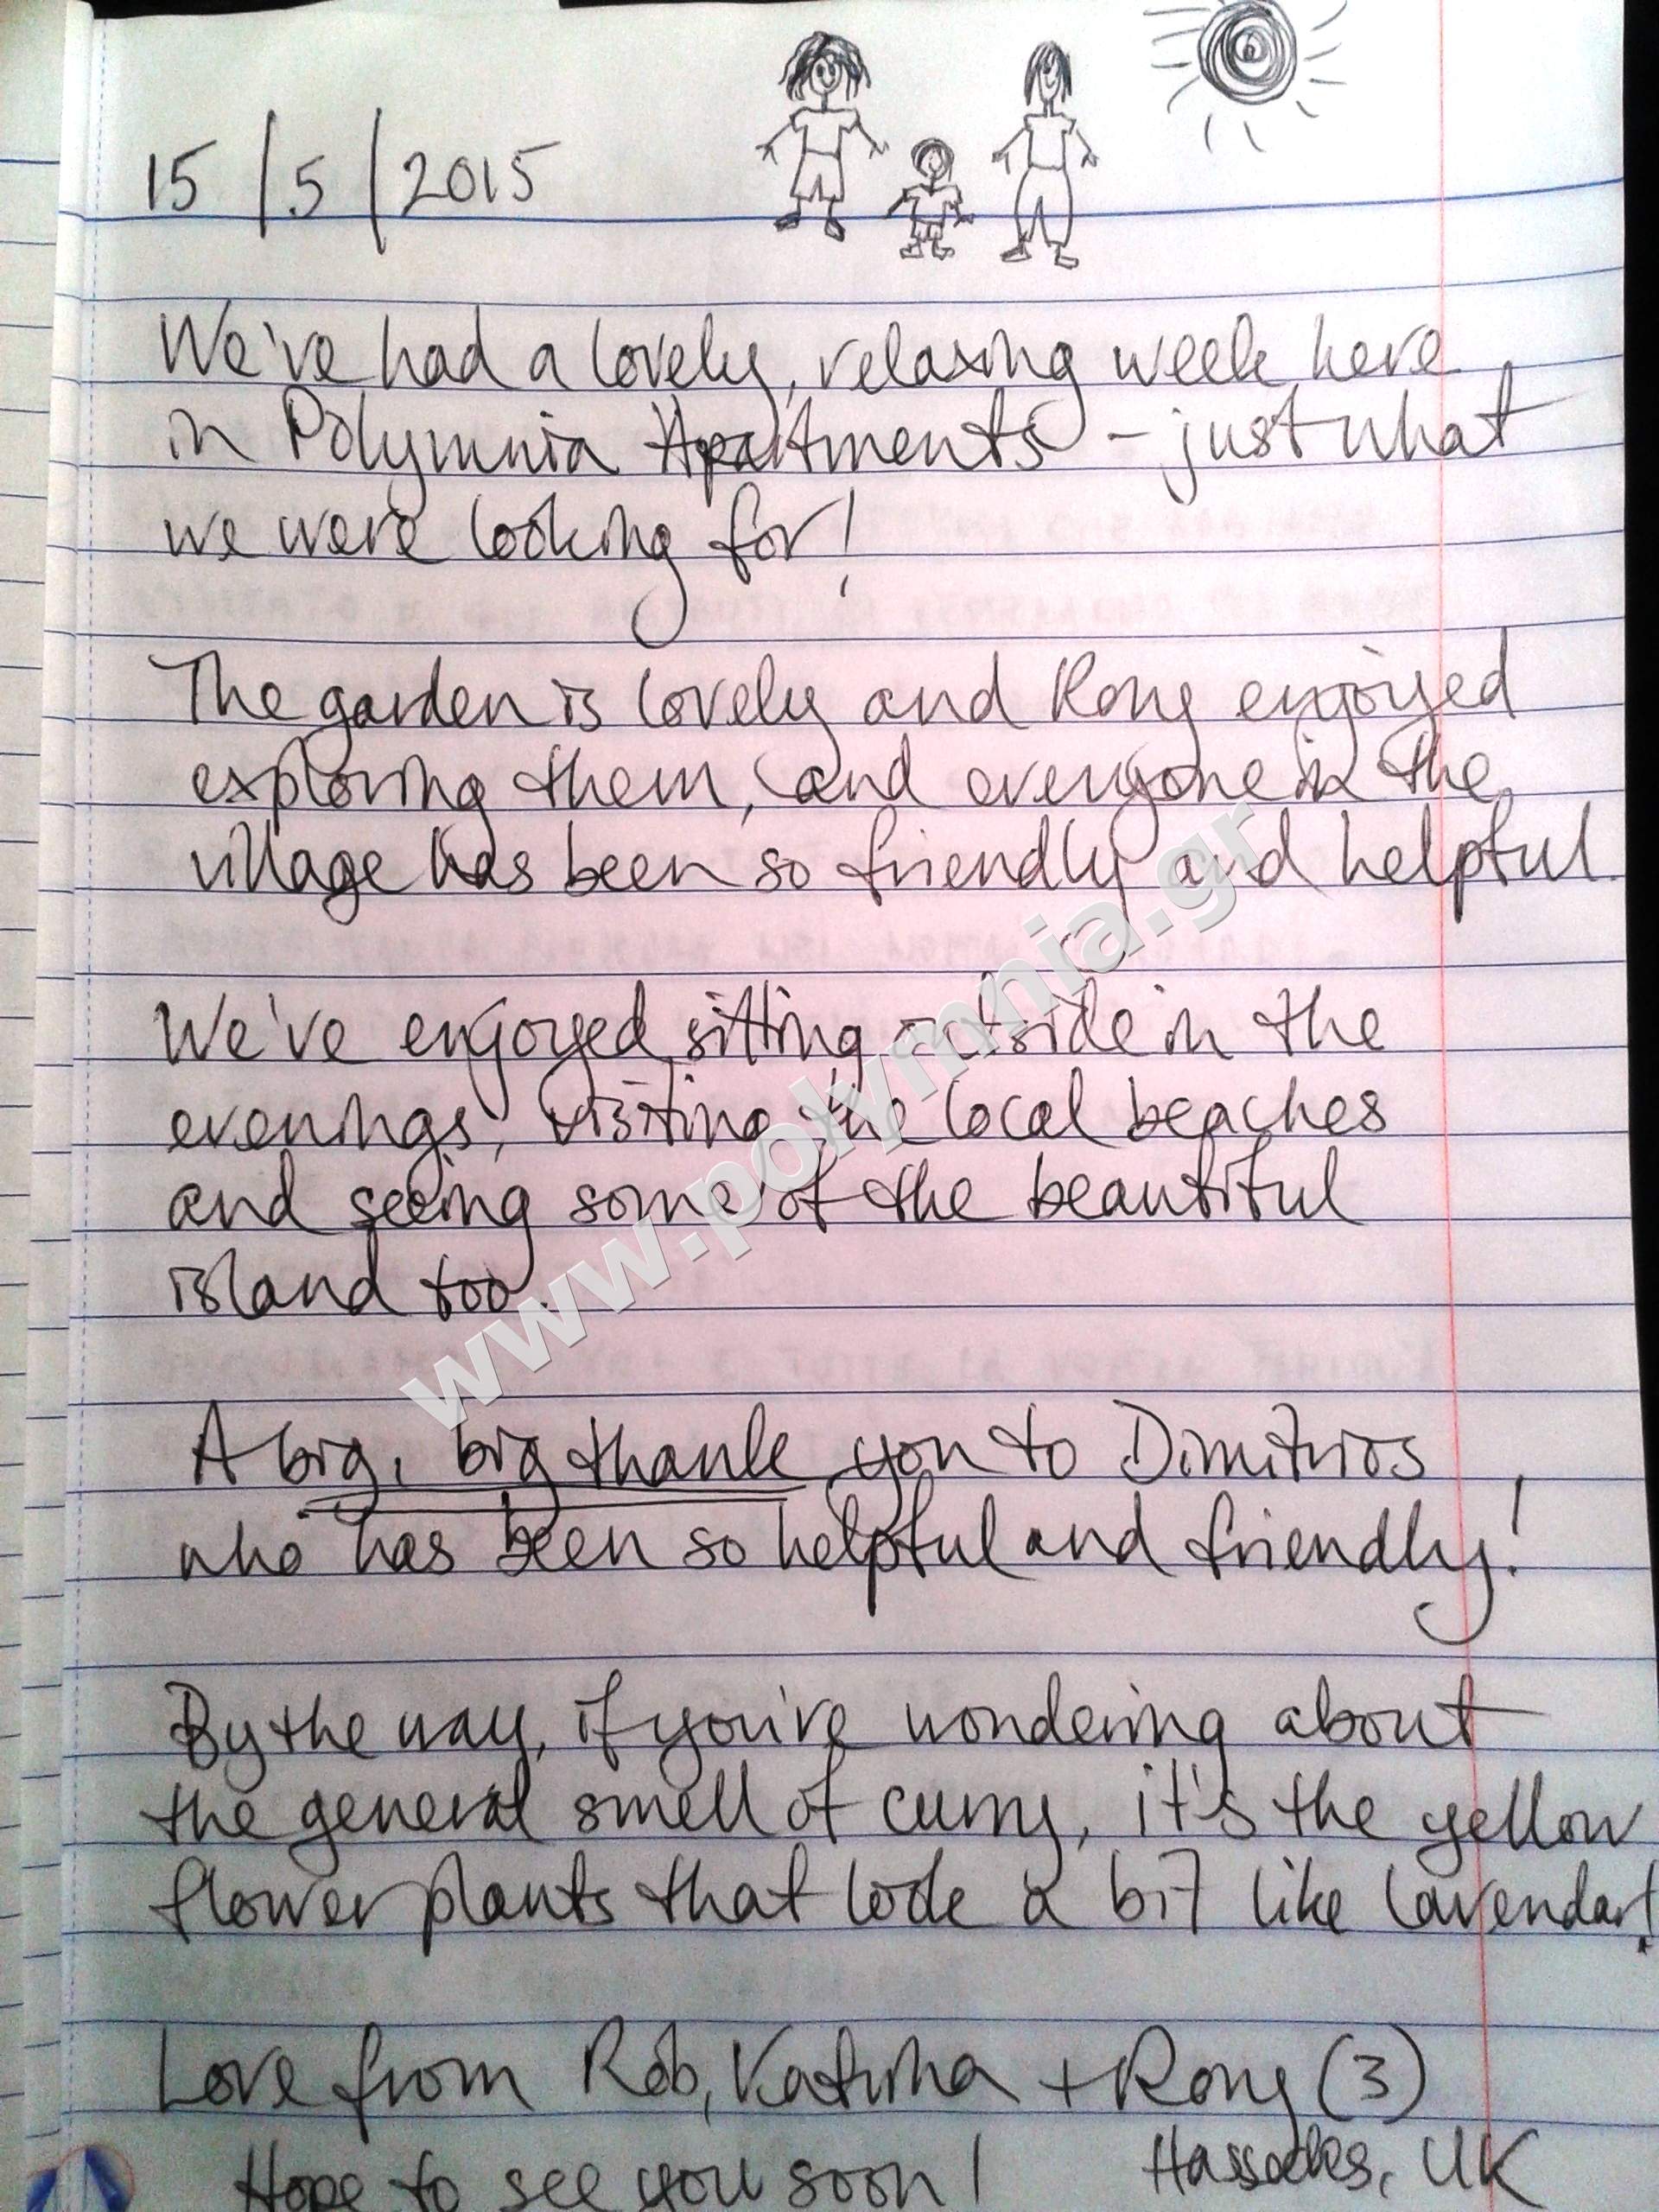 15/5/2015
We've had a lovely, relaxing week here
in Polymnia Apartments - just what
we were looking for!
The garden is lovely and Rory enjoyed
exploring them, and everyone in the
village has been so friendly and helpful.
We've enjoyed sitting outside in the
evenings, visiting the local beaches
and seeing some of the beautiful
island too.
A big, big thank you to Dimitrios
who has been so helpful and friendly!
By the way, if you're wondering about
the general smell of curry, it's the yellow
flower plants that look a bit like lavendar!
Love from Rob, Katrina + Rory (3)
Hope to see you soon! Hassocks, UK
www.polymnia.gr